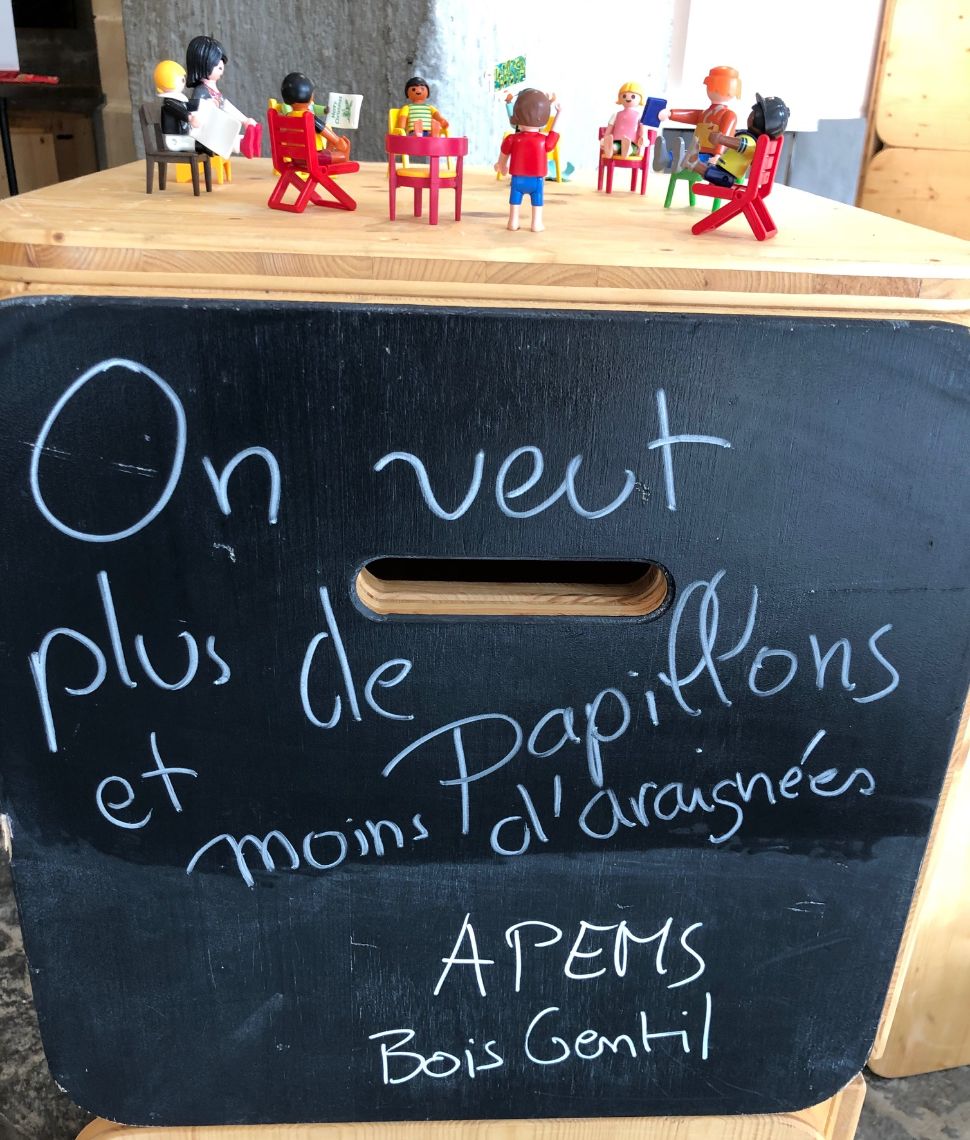 On veut
plus de Papillons
et moins d'araignées
APEMS
Bois Gentil